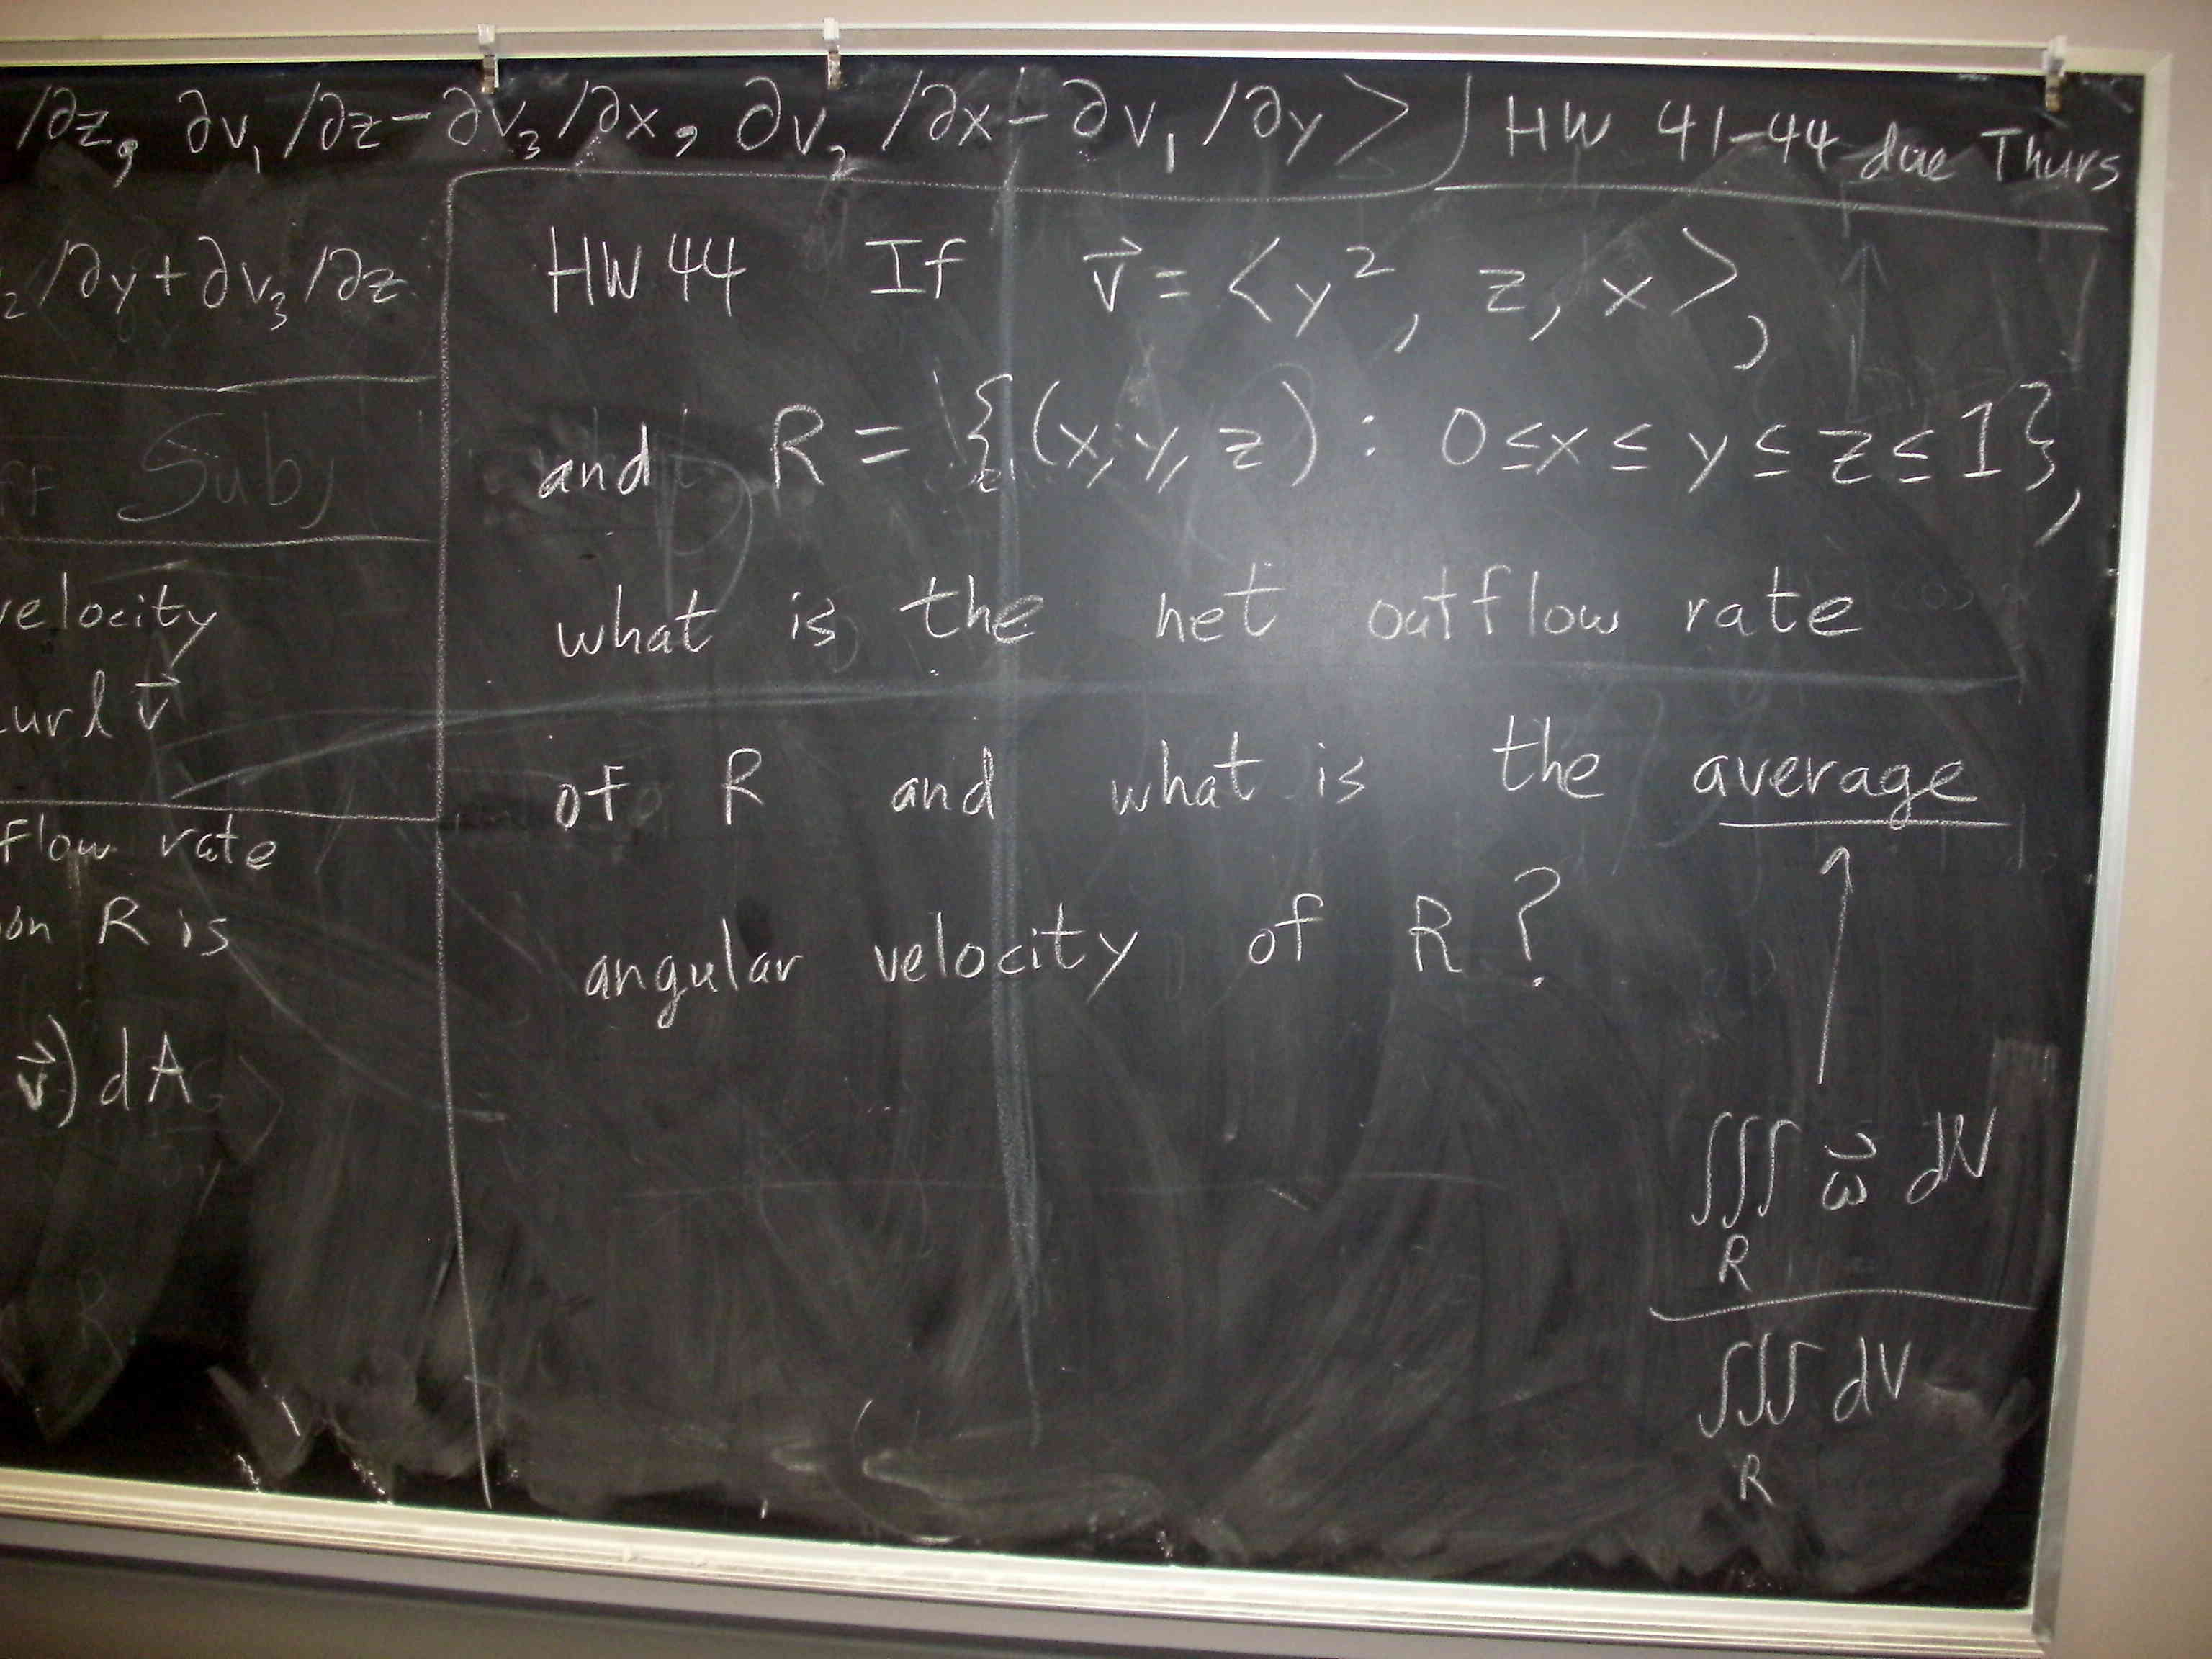 /∂z, ∂v₁/∂z-∂v₃/∂x, ∂v₂/∂x-∂v₁/∂y>
HW 41-44 due Thurs
₂/∂y+∂v₃/∂z
Subj
velocity
curl v⃗
flow rate
on R is
v⃗) dA
HW 44 If v⃗ = <y², z, x>,
and R = {(x,y,z) : 0≤x≤y≤z≤1},
what is the net outflow rate
of R and what is the average
angular velocity of R?
∭ ω⃗ dV
R
∭ dV
R